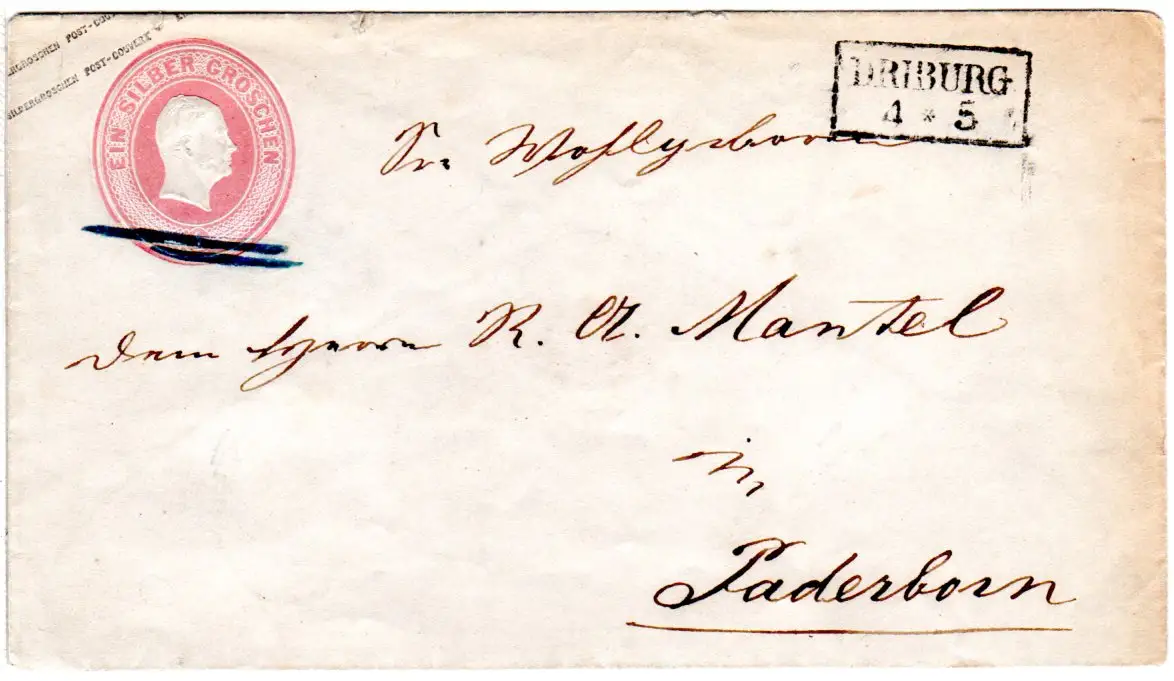 GROSCHEN POST-COUV
SILBERGROSCHEN POST-COUVERT
EIN SILBER GROSCHEN
DRIBURG
4 * 5
Sr. Wohlgeboren
dem Herrn R. A. Mantel
in
Paderborn